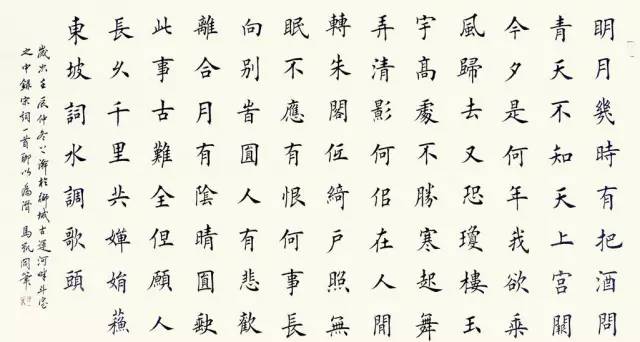 明月幾時有把酒問
青天不知天上宮闕
今夕是何年我欲乘
風歸去又恐瓊樓玉
宇高處不勝寒起舞
弄清影何佀在人間
轉朱閣低綺戶照無
眠不應有恨何事長
向別旹圓人有悲歡
離合月有陰晴圓缺
此事古難全但願人
長久千里共嬋娟蘇
東坡詞水調歌頭
歲次壬辰仲冬於獅城古運河畔斗室
之中錄宋詞一首聊以為 馬凱同筆